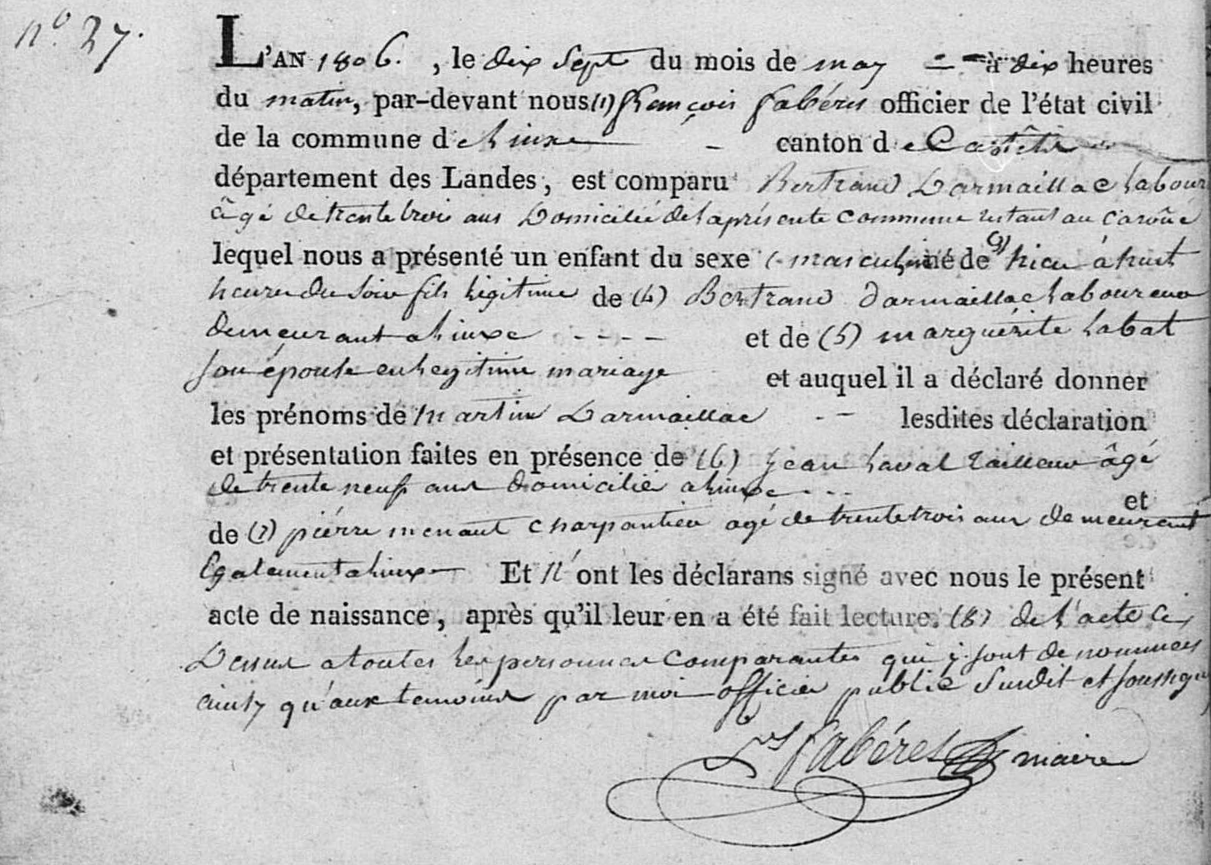 n.º 27.
L'AN 1806. , le dix sept du mois de may à dix heures
du matin, par-devant nous (1) françois fabéres officier de l'état civil
de la commune de Linxe - canton de Castets
département des Landes, est comparu Bertrand Darmaillac Labour
âgé de trente trois ans Domicilié de la présente commune restant au
lequel nous a présenté un enfant du sexe masculin né de (3) hier à huit
heures du soir fils légitime de (4) Bertrand darmaillac laboureur
demeurant a Linxe - - - - et de (5) marguérite Labat
son épouse en Légitime mariage et auquel il a déclaré donner
les prénoms de Martin Darmaillac - - lesdites déclaration
et présentation faites en présence de (6) Jean Laval Tailleur âgé
de trente neuf ans domicilié a Linxe - - - et
de (7) piérre menaut charpantier agé de trente trois ans demeurent
Egalement a Linxe Et n'ont les déclarans signé avec nous le présent
acte de naissance, après qu'il leur en a été fait lecture. (8) de l'acte ci
Dessus a toutes les personnes comparantes qui y sont denommées
ainsy qu'aux temoins par moi officier public Susdit et soussigné
fabéres maire